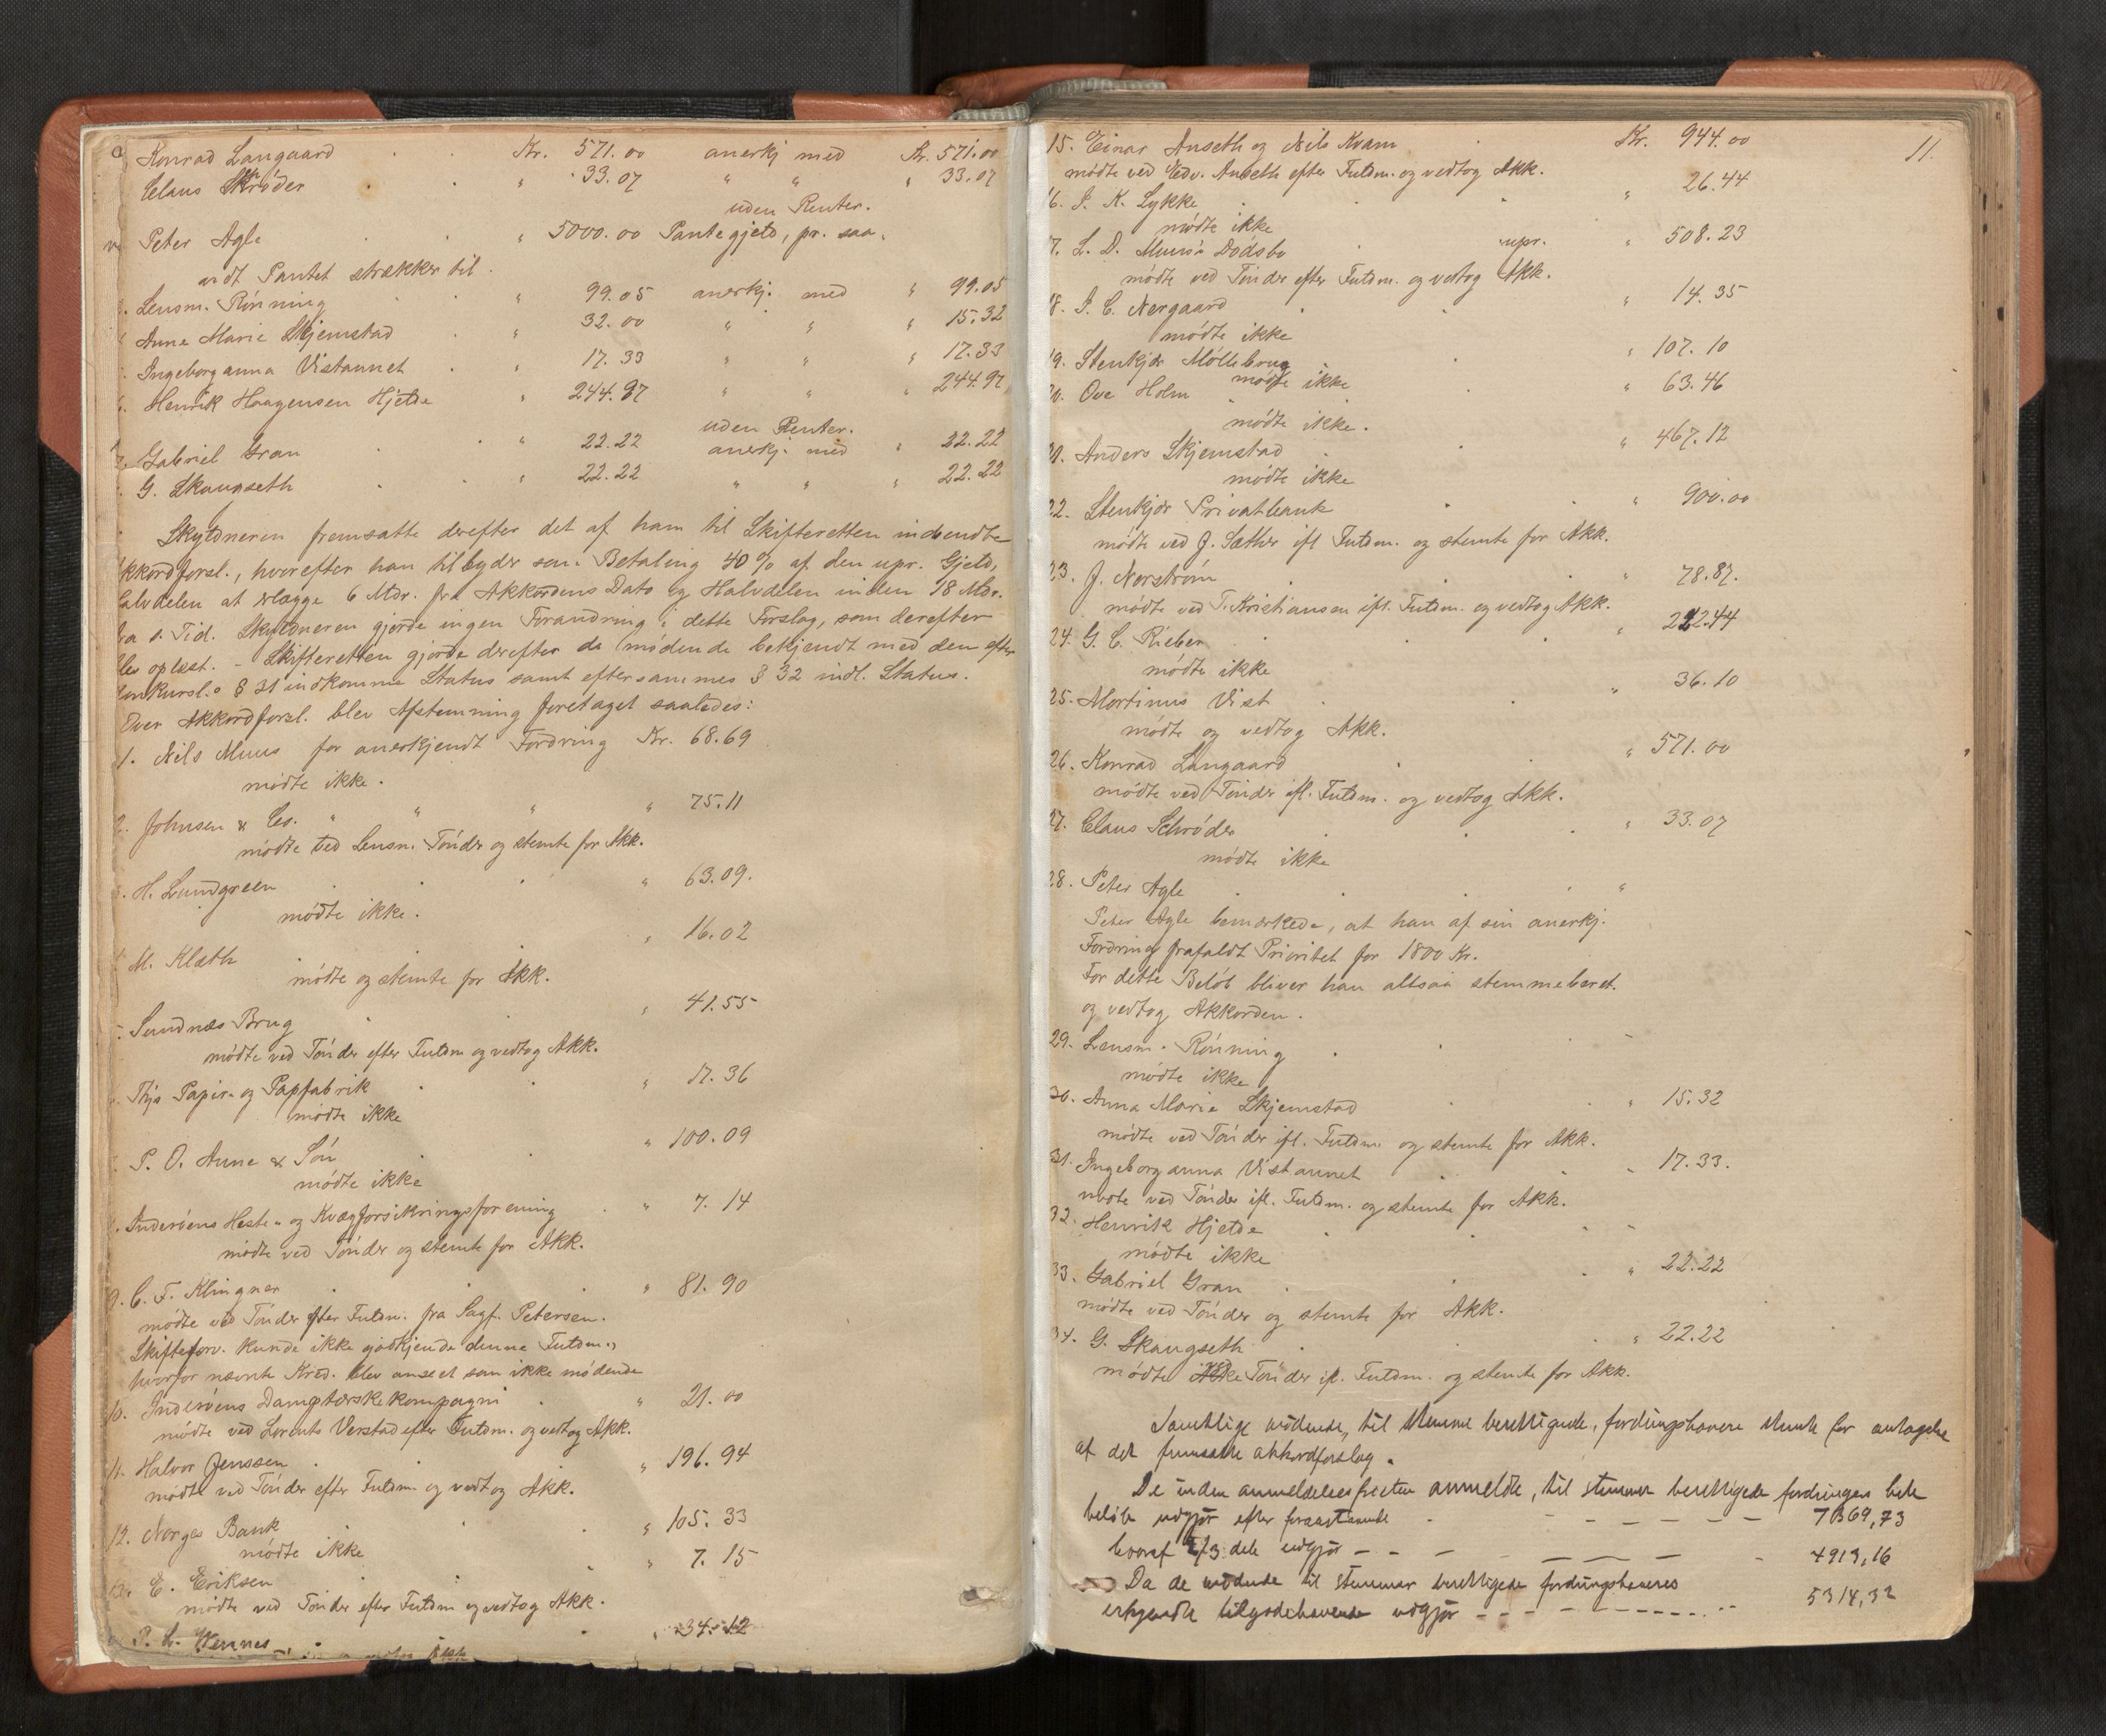 Konrad Langaard . . Kr. 571.00 anerkj med Kr. 571.00
Claus Skrøder . . " 33.07 " " " 33.07
uden Renter.
Peter Agle . . " 5000.00 Pantegjeld, pr. saa-
vidt Pantet strækker til.
Lensm. Rønning . . " 99.05 anerkj. med " 99.05
Anne Marie Skjemstad . " 32.00 " " " 15.32
Ingeborganna Vistaunet . " 17.33 " " " 17.33
Henrik Haagensen Hjelde " 244.97 " " " 244.97
uden Renter.
Gabriel Gran . . " 22.22 anerkj. med " 22.22
G. Skaugseth . . " 22.22 " " " 22.22
Skyldneren fremsatte derefter det af ham til Skifteretten indsendte
kkordforsl., hvorefter han tilbyder som Betaling 40% af den upr. Gjeld,
alvdelen at erlægge 6 Mdr. fra Akkordens Dato og Halvdelen inden 18 Mdr.
fra s. Tid. Skyldneren gjorde ingen Forandring i dette Forslag, som derefter
blev oplæst. - Skifteretten gjorde derefter de mødende bekjendt med den efter
Konkursl.s § 31 indkomne Status samt efter sammes § 32 indl. Status.
Over Akkordforsl. blev Afstemning foretaget saaledes:
1. Nils Muus for anerkjendt Fordring Kr. 68.69
mødte ikke.
2. Johnsen & Co. " " " " 75.11
mødte ved Lensm. Tønder og stemte for Akk.
3. H. Lundgreen . . . " 63.09.
mødte ikke.
M. Klæth . . " 16.02
mødte og stemte for Akk.
Sundnæs Brug . . " 41.55
mødte ved Tønder efter Fuldm og vedtog Akk.
Thjs Papir- og Papfabrik . . " 17.36
mødte ikke
P. O. Aune & Søn . . " 100.09
mødte ikke
Inderøens Heste- og Kvægforsikringsforening . " 7.14
mødte ved Tønder og stemte for Akk.
9. C. F. Klingner . . . " 81.90
mødte ved Tønder efter Fuldm. fra Sagf. Petersen.
Skifteforv. kunde ikke godkjende denne Fuldm.,
hvorfor nævnte Kred. blev anseet som ikke mødende
10. Inderøens Damptærskekompagni . " 21.00
mødte ved Lorents Verstad efter Fuldm. og vedtog Akk.
11. Halvor Jenssen . . " 196.94
mødte ved Tønder efter Fuldm og vedtog Akk.
12. Norges Bank . . " 105.33
mødte ikke
13. E. Eriksen . . " 7.15
mødte ved Tønder efter Fuldm og vedtog Akk.
P. L. Wennes . . " 34.12
11.
15. Einar Auseth og Nils Kvam . Kr. 944.00
mødte ved Edv. Auseth efter Fuldm. og vedtog Akk.
16. I. K. Lykke . . . " 26.44
mødte ikke
17. L. D. Muus's Dødsbo . upr. " 508.23
mødte ved Tønder efter Fuldm. og vedtog Akk.
18. I. C. Nergaard . . " 14.35
mødte ikke
19. Stenkjær Møllebrug . . " 107.10
mødte ikke
20. Ove Holm . . " 63.46
mødte ikke.
21. Anders Skjemstad . . " 467.12
mødte ikke
22. Stenkjær Privatbank . . " 900.00
mødte ved J. Sæther ifl Fuldm. og stemte for Akk.
23. J. Norstrøm . . " 78.87.
mødte ved T. Kristiansen ifl. Fuldm. og vedtog Akk.
24. G. C. Rieber . . " 222.44
mødte ikke
25. Martinus Vist . . " 36.10
mødte og vedtog Akk.
26. Konrad Langaard . . " 571.00
mødte ved Tønder ifl. Fuldm. og vedtog Akk.
27. Claus Schrøder . . " 33.07
mødte ikke
28. Peter Agle . . . "
Peter Agle bemærkede, at han af sin anerkj.
Fordring frafaldt Prioritet for 1800 Kr.
For dette Beløb bliver han altsaa stemmeberet.
og vedtog Akkorden.
29. Lensm. Rønning . . -
mødte ikke
30. Anna Marie Skjemstad . . " 15.32
mødte ved Tønder ifl. Fuldm. og stemte for Akk.
31. Ingeborganna Vistaunet . . " 17.33.
mødte ved Tønder ifl. Fuldm. og stemte for Akk.
32. Henrik Hjelde . . - -
mødte ikke
33. Gabriel Gran . . " 22.22
mødte ved Tønder og stemte for Akk.
34. G. Skaugseth . . " 22.22
mødte ved Tønder ifl. Fuldm. og stemte for Akk.
Samtlige mødende, til stemme berettigede, fordringshavere stemte for antagelse
af det fremsatte akkordforslag.
De inden anmeldelsesfristen anmeldte, til stemme berettigede fordringers hele
beløb udgjør efter foranstaaende - - - - 7369,73
hvoraf 2/3 dele udgjør - - - - 4913,16
Da de mødende til stemmer berettigede fordringshaveres
erkjendte tilgodehavende udgjør - - - - 5314,32